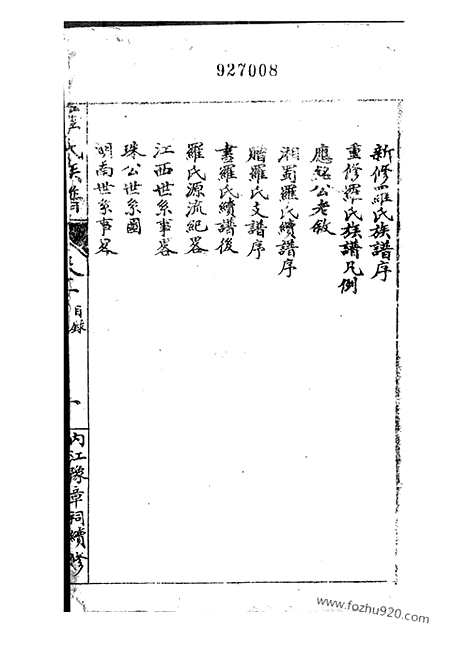 927008
新修羅氏族譜序
重修羅氏族譜凡例
應銘公老敘
湘蜀羅氏續譜序
贈羅氏支譜序
書羅氏續譜後
羅氏源流紀畧
江西世系事畧
珠公世系圖
湖南世系事畧
羅氏族譜
目錄
一
內江豫章祠續修
www.fozhu920.com